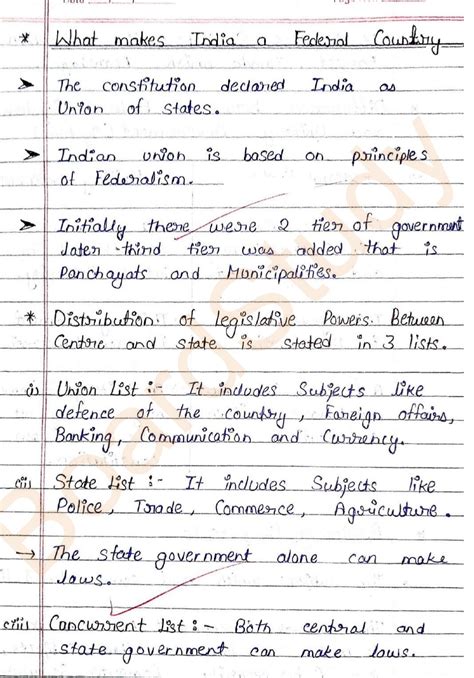 * What makes India a Federal Country
➤ The constitution declared India as
Union of states.
➤ Indian union is based on principles
of Federalism.
➤ Initially there were 2 tier of government
later third tier was added that is
Panchayats and Municipalities.
* Distribution of legislative Powers Between
Centre and state is stated in 3 lists.
(i) Union List :- It includes Subjects like
defence of the country, Foreign affairs,
Banking, Communication and Currency.
(ii) State List :- It includes Subjects like
Police, Trade, Commerce, Agriculture.
→ The state government alone can make
laws.
(iii) Concurrent List :- Both central and
state government can make laws.
BoardStudy